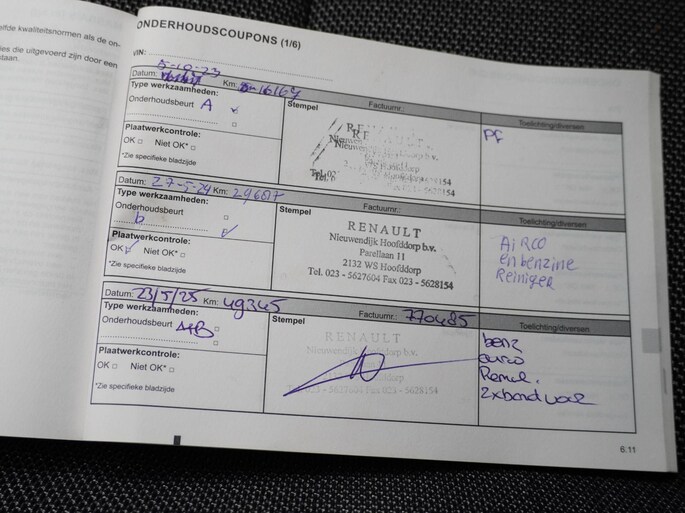 elfde kwaliteitsnormen als de on-
ies die uitgevoerd zijn door een
ONDERHOUDSCOUPONS (1/6)
VIN:
5-10-23
Datum: Km: 16167
Type werkzaamheden:
Onderhoudsbeurt A
Plaatwerkcontrole:
OK □ Niet OK* □
*Zie specifieke bladzijde
Stempel Factuurnr.:
RENAULT
Nieuwendijk Hoofddorp b.v.
2132 WS Hoofddorp
Tel. 023 - 5628154
Toelichting/diversen
Pf
Datum: 27-5-24 Km: 29687
Type werkzaamheden:
Onderhoudsbeurt □
b
Plaatwerkcontrole:
OK □ Niet OK* □
*Zie specifieke bladzijde
Stempel
RENAULT
Nieuwendijk Hoofddorp b.v.
Parellaan 11
2132 WS Hoofddorp
Tel. 023 - 5627604 Fax 023 - 5628154
Toelichting/diversen
AIRCO
en benzine
Reiniger
Datum: 23/5/25 Km: 49345
Type werkzaamheden:
Onderhoudsbeurt □
Plaatwerkcontrole:
OK □ Niet OK* □
*Zie specifieke bladzijde
Stempel Factuurnr.: 770485
RENAULT
Nieuwendijk Hoofddorp b.v.
023 - 5627604 Fax 023 - 5628154
Toelichting/diversen
benz
Remol.
6.11